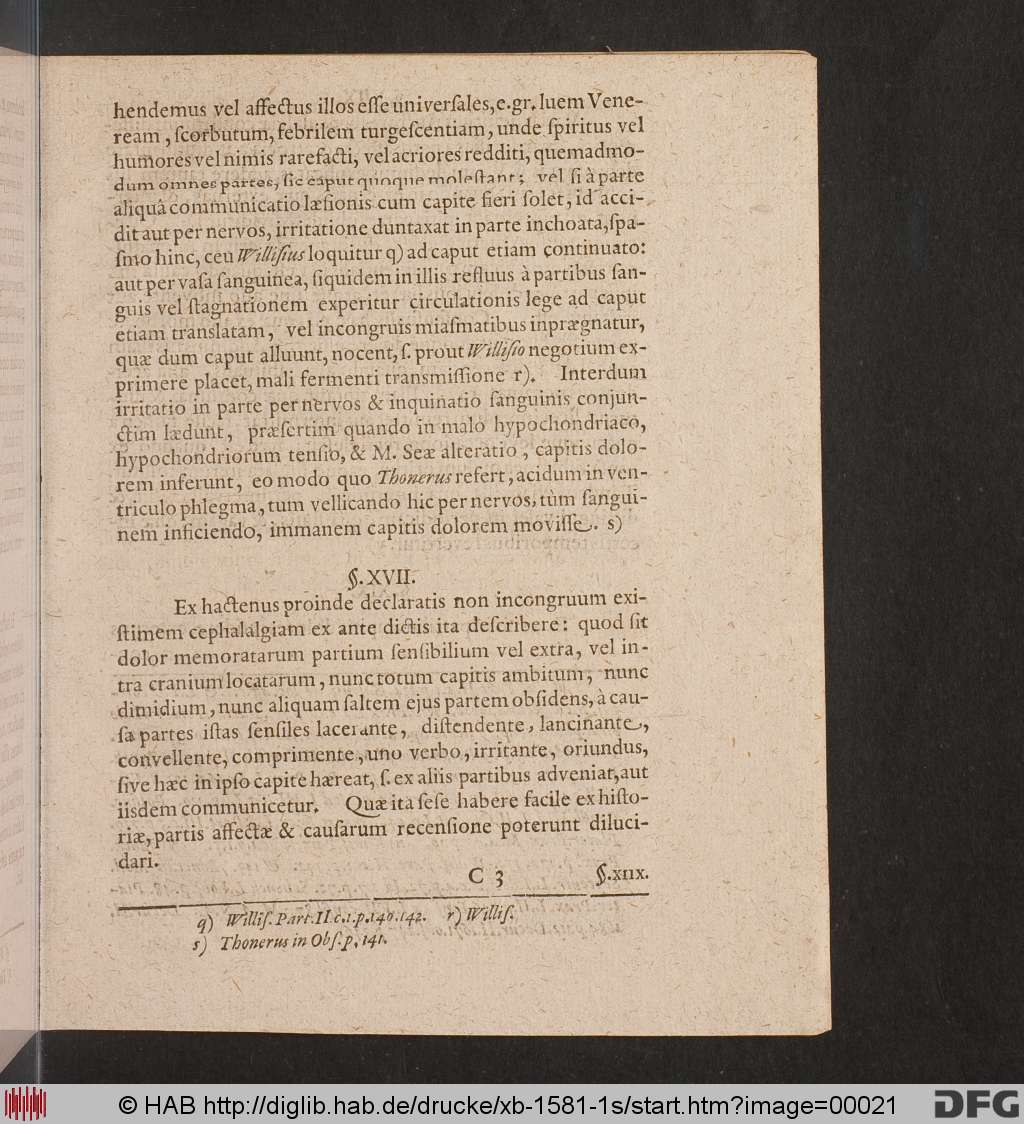 hendemus vel affectus illos eſſe univerſales, e.gr. luem Vene-
ream, ſcorbutum, febrilem turgeſcentiam, unde ſpiritus vel
humores vel nimis rarefacti, vel acriores redditi, quemadmo-
dum omnes partes, ſic caput quoque moleſtant; vel ſi à parte
aliquâ communicatio læſionis cum capite fieri ſolet, id acci-
dit aut per nervos, irritatione duntaxat in parte inchoata, ſpa-
ſmo hinc, ceu Williſius loquitur q) ad caput etiam continuato:
aut per vaſa ſanguinea, ſiquidem in illis refluus à partibus ſan-
guis vel ſtagnationem experitur circulationis lege ad caput
etiam translatam, vel incongruis miaſmatibus inprægnatur,
quæ dum caput alluunt, nocent, ſ. prout Williſio negotium ex-
primere placet, mali fermenti transmiſſione r). Interdum
irritatio in parte per nervos & inquinatio ſanguinis conjun-
ctim lædunt, præſertim quando in malo hypochondriaco,
hypochondriorum tenſio, & M. Seæ alteratio, capitis dolo-
rem inferunt, eo modo quo Thonerus refert, acidum in ven-
triculo phlegma, tum vellicando hic per nervos, tùm ſangui-
nem inficiendo, immanem capitis dolorem moviſſe. s)
§. XVII.
Ex hactenus proinde declaratis non incongruum exi-
ſtimem cephalalgiam ex ante dictis ita deſcribere: quod ſit
dolor memoratarum partium ſenſibilium vel extra, vel in-
tra cranium locatarum, nunc totum capitis ambitum, nunc
dimidium, nunc aliquam ſaltem ejus partem obſidens, à cau-
ſa partes iſtas ſenſiles lacerante, diſtendente, lancinante,
convellente, comprimente, uno verbo, irritante, oriundus,
ſive hæc in ipſo capite hæreat, ſ. ex aliis partibus adveniat, aut
iisdem communicetur. Quæ ita ſeſe habere facile ex hiſto-
riæ, partis affectæ & cauſarum recenſione poterunt diluci-
dari.
C 3 §. XIIX.
q) Williſ. Part. II. c. 1. p. 140. 142. r) Williſ.
s) Thonerus in Obſ. p. 141.
© HAB http://diglib.hab.de/drucke/xb-1581-1s/start.htm?image=00021
DFG